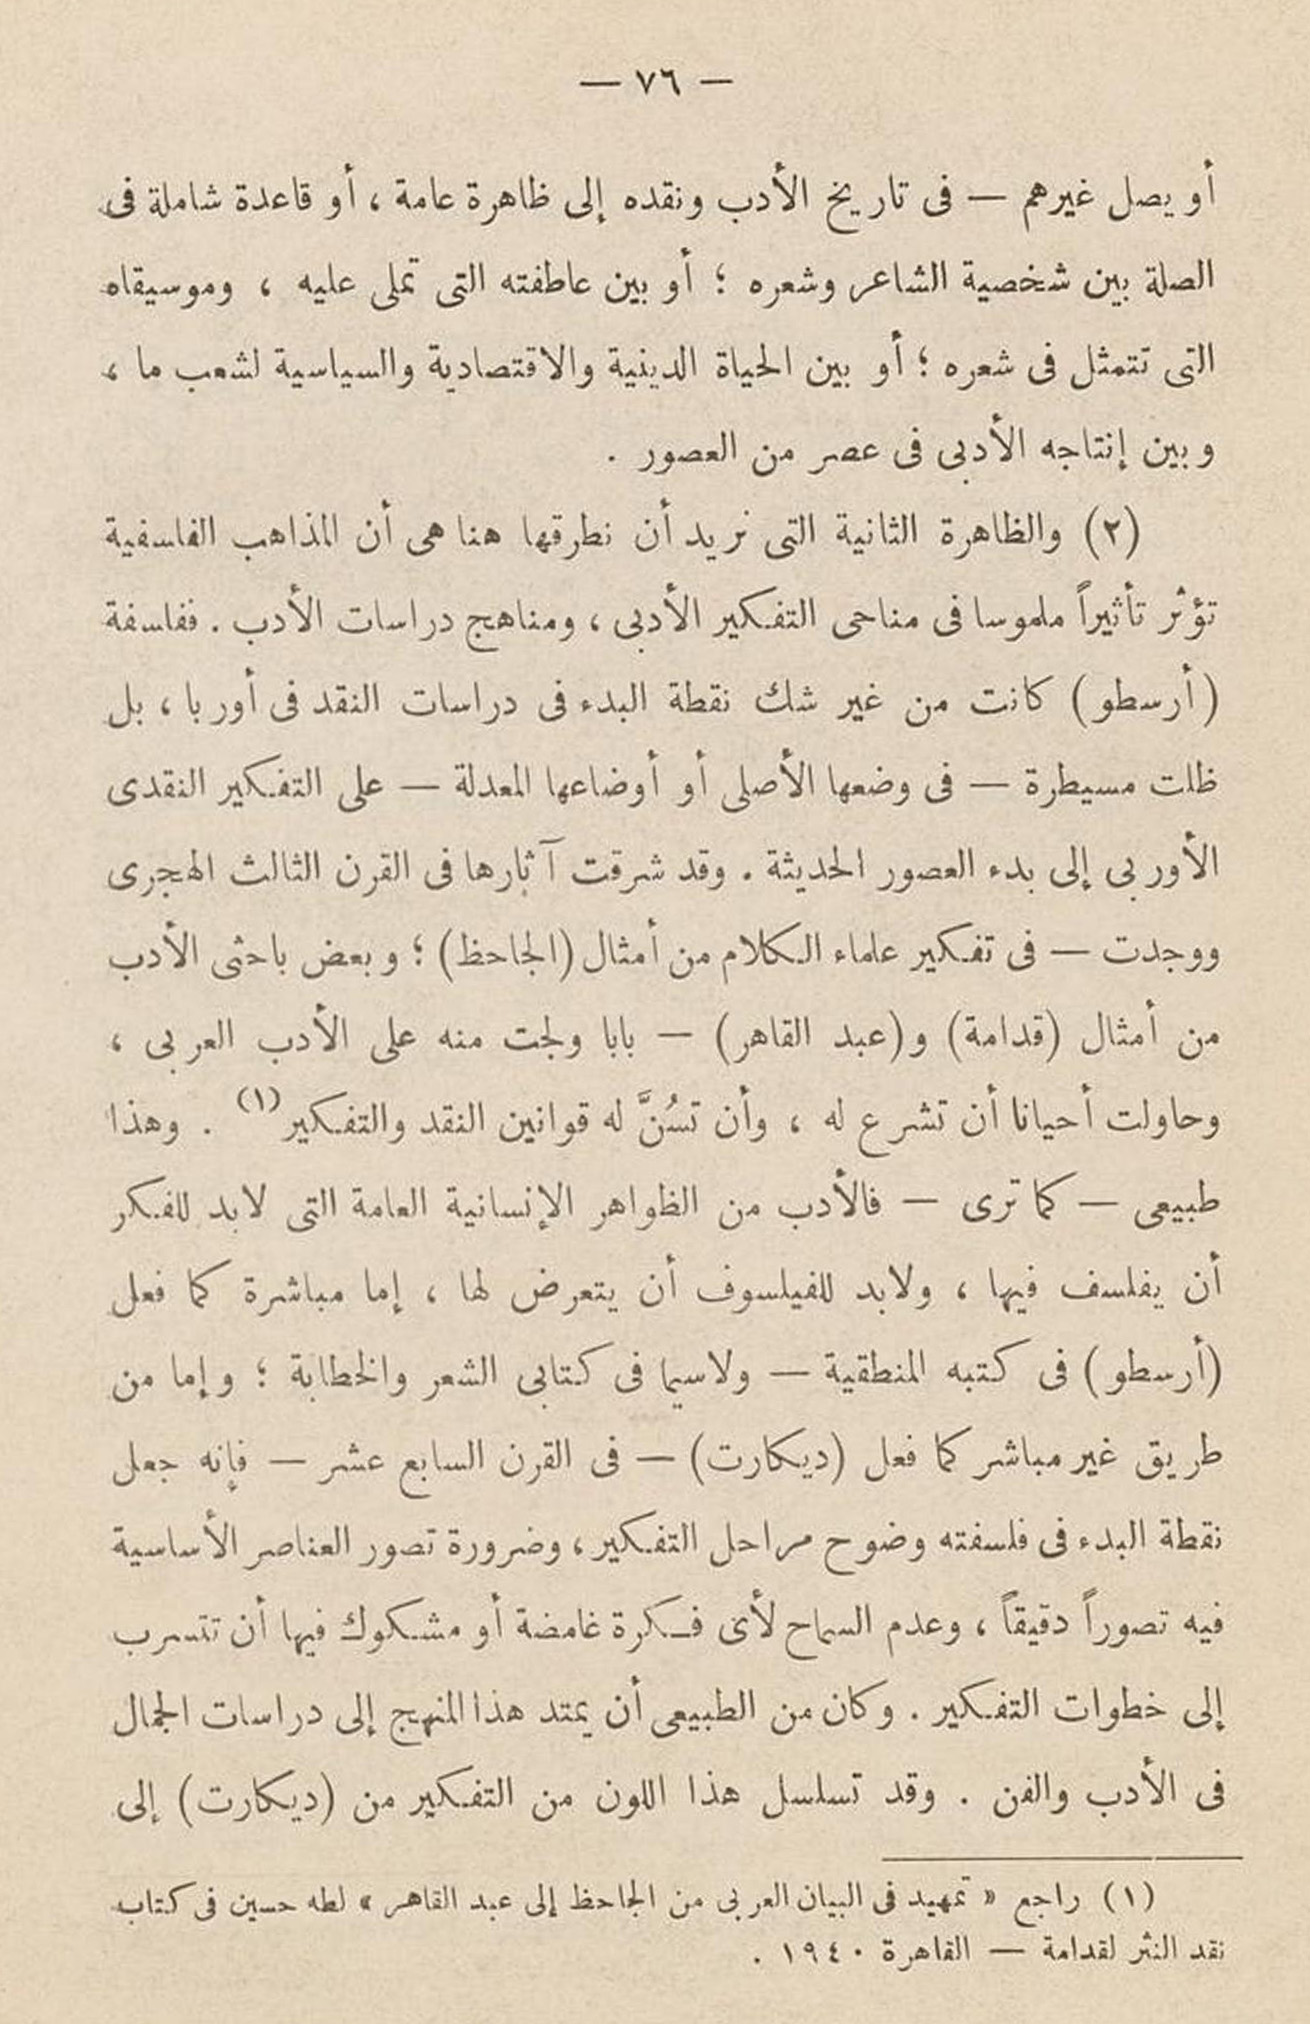 — ٧٦ —
أو يصل غيرهم — فى تاريخ الأدب ونقده إلى ظاهرة عامة ، أو قاعدة شاملة فى
الصلة بين شخصية الشاعر وشعره ؛ أو بين عاطفته التى تملى عليه ، وموسيقاه
التى تتمثل فى شعره ؛ أو بين الحياة الدينية والاقتصادية والسياسية لشعب ما ،
وبين إنتاجه الأدبى فى عصر من العصور .
(٢) والظاهرة الثانية التى نريد أن نطرقها هنا هى أن المذاهب الفلسفية
تؤثر تأثيراً ملموسا فى مناحى التفكير الأدبى ، ومناهج دراسات الأدب . ففلسفة
(أرسطو) كانت من غير شك نقطة البدء فى دراسات النقد فى أوربا ، بل
ظلت مسيطرة — فى وضعها الأصلى أو أوضاعها المعدلة — على التفكير النقدى
الأوربى إلى بدء العصور الحديثة . وقد شرقت آثارها فى القرن الثالث الهجرى
ووجدت — فى تفكير علماء الكلام من أمثال (الجاحظ) ؛ وبعض باحثى الأدب
من أمثال (قدامة) و(عبد القاهر) — بابا ولجت منه على الأدب العربى ،
وحاولت أحيانا أن تشرع له ، وأن تسُنَّ له قوانين النقد والتفكير (١) . وهذا
طبيعى — كما ترى — فالأدب من الظواهر الإنسانية العامة التى لابد للفكر
أن يفلسف فيها ، ولابد للفيلسوف أن يتعرض لها ، إما مباشرة كما فعل
(أرسطو) فى كتبه المنطقية — ولاسيما فى كتابى الشعر والخطابة ؛ وإما من
طريق غير مباشر كما فعل (ديكارت) — فى القرن السابع عشر — فإنه جعل
نقطة البدء فى فلسفته وضوح مراحل التفكير ، وضرورة تصور العناصر الأساسية
فيه تصوراً دقيقاً ، وعدم السماح لأى فكرة غامضة أو مشكوك فيها أن تتسرب
إلى خطوات التفكير . وكان من الطبيعى أن يمتد هذا المنهج إلى دراسات الجمال
فى الأدب والفن . وقد تسلسل هذا اللون من التفكير من (ديكارت) إلى
(١) راجع « تمهيد فى البيان العربى من الجاحظ إلى عبد القاهر » لطه حسين فى كتاب
نقد النثر لقدامة — القاهرة ١٩٤٠ .